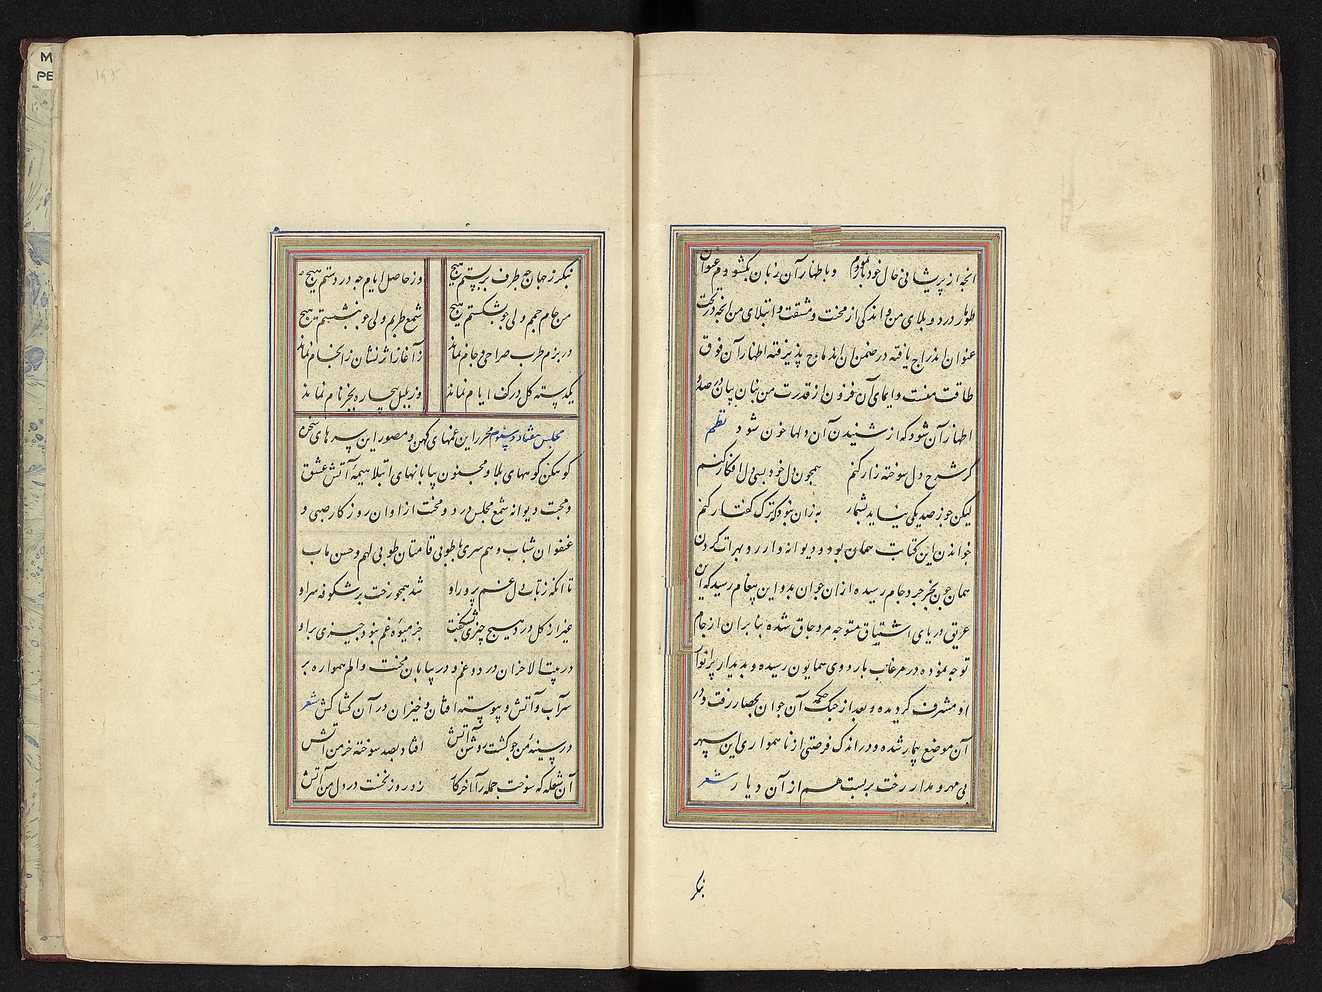 انچه از پریشانی حال خود بازنمودم و باظهار آن زبان بگشودم عنوان
طومار درد و بلای من و اندکی از محنت و مشقت و ابتلای من انچه در تحت
عنوان اندراج یافته در ضمن آن اندماج پذیرفته اظهار آن فوق
طاقت منست و ایمای آن فزون از قدرت من بنان بیان بصدد
اظهار آن شود که از شنیدن آن دلها خون شود نظم
گر شرح دل سوخته زار کنم همچون دل خود بسی دل افکار کنم
لیکن چو ز صد یکی نیاید بشمار به زان نبود که ترک گفتار کنم
خواندن این کتابت همان بود و دیوانه وار رو بهرات کردن
همان چون بخرجرد جام رسیده از ان جوان بدو این پیغام رسید که آن
غریق دریای اشتیاق متوجه مروجاق شده بنا بران از جام
توجه نموده در مرغاب باردوی همایون رسیده و بدیدار پر انوار
او مشرف گردیده و بعد از جنگ آن جوان بحصار رفت و در
آن موضع بیمار شده و در اندک فرصتی از ناهمواری این سپهر
بی مهر و مدار رخت بربست هم از آن دیار شعر
بنگر
بنگر ز جهان چه طرف بربستم هیچ وز حاصل ایام چه در دستم هیچ
من جام جمم ولی چو بشکستم هیچ شمع طربم ولی چو بنشستم هیچ
در بزم طرب صراحی و جام نماند ز آغاز اثر نشان ز انجام نماند
یکدسته گل در کف ایام نماند وز بلبل بیچاره بجز نام نماند
مجلس هفتاد و سیوم محرر این غمهای کهن و مصور این سر های سخن
کوهکن کوههای بلا و مجنون بیابانهای ابتلا هیمه آتش عشق
و محبت و دیوانه شمع مجلس درد و محنت از اوان روزکار صبی و
عنفوان شباب و هم سری با طوبی قامتان طوبی لهم و حسن مآب
تا انکه ز تاب دل غم پرور او شد همچو درخت پر شکوفه سر او
غیر از گل درد هیچ چیزی نشکفت جز میوه غم نبود چیزی بر او
در بیت الاحزان درد و غم و در بیابان محنت و الم همواره بر
سر آب و آتش و پیوسته افتان و خیزان در آن کشاکش شعر
در سینه من چو گشت روشن آتش افتاد بصد سوخته خرمن آتش
آن شعله که سوخت جمله را آخر کار زد روز نخست در دل من آتش